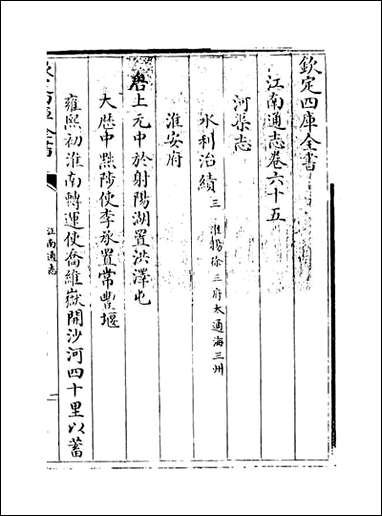 欽定四庫全書
江南通志卷六十五
河渠志
水利治績三 淮揚徐三府太通海三州
淮安府
唐上元中於射陽湖置洪澤屯
大歷中黜陟使李承置常豐堰
雍熙初淮南轉運使喬維嶽開沙河四十里以蓄
江南通志